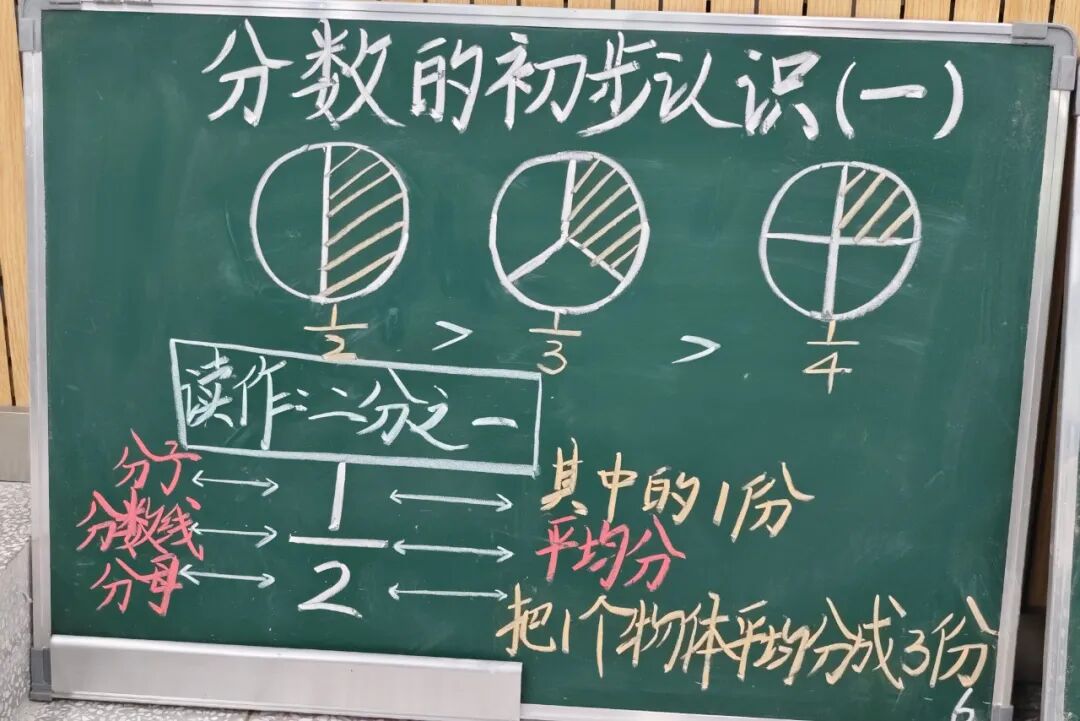 分数的初步认识(一)
1/2 > 1/3 > 1/4
读作:二分之一
分子 ↔ 1 ↔ 其中的1份
分数线 ↔ — ↔ 平均分
分母 ↔ 2 ↔ 把1个物体平均分成3份
6